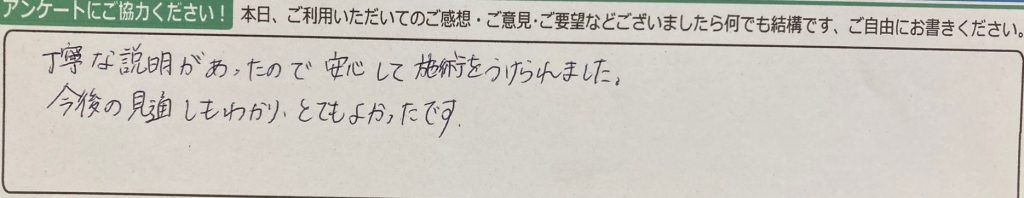 アンケートにご協力ください！ 本日、ご利用いただいてのご感想・ご意見・ご要望などございましたら何でも結構です、ご自由にお書きください。
丁寧な説明があったので安心して施術をうけられました。
今後の見通しもわかり、とてもよかったです.